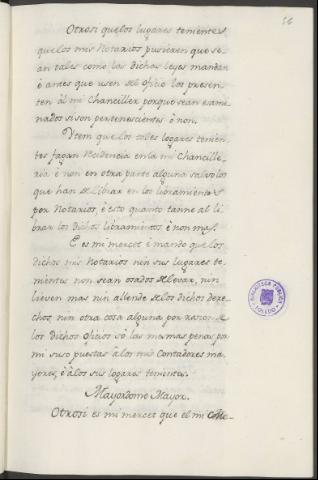 56
Otrosi quelos lugares tenientes
quelos mis Notarios pusieren que se-
an tales como las dichas leyes mandan
é antes que usen del oficio los presen-
ten al mi Chanciller porque sean exami-
nados si son pertenescientes ó non.
Ytem que los tales logares tenien-
tes fagan Residencia en la mi Chancille-
ria é non en otra parte alguna salvo los
que han de librar en los libramientos
por Notarios, é esto quanto tanne al li-
brar los dichos libramientos é non mas.
E es mi mercet é mando que los
dichos mis Notarios nin sus lugares te-
nientes non sean osados de levar, nin
lieven mas nin allende de los dichos dere-
chos, nin otra cosa alguna por razon de
los dichos oficios só las mesmas penas por
mi suso puestas á los mis Contadores ma-
yores, é á los sus logares tenientes.
Mayordomo Mayor.
Otrosi es mi mercet que el mi
BIBLIOTECA PUBLICA
TOLEDO